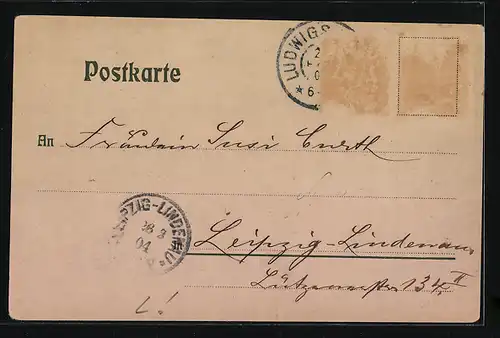 Postkarte
LUDWIGS
2
0
* 6-
An Fräulein Susi Curth
LEIPZIG-LINDENAU
28 3
04
Leipzig-Lindenau
Lütznerstr 134 II
L!